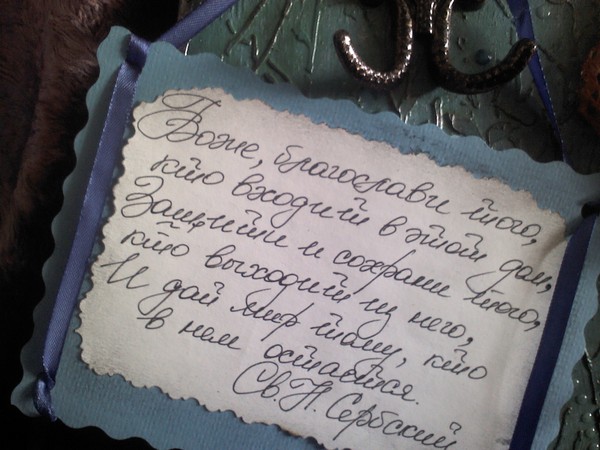 Боже, благослави того,
кто входит в этот дом,
Защити и сохрани того,
кто выходит из него,
И дай мир тому, кто
в нем остаётся.
Св. Н. Сербский